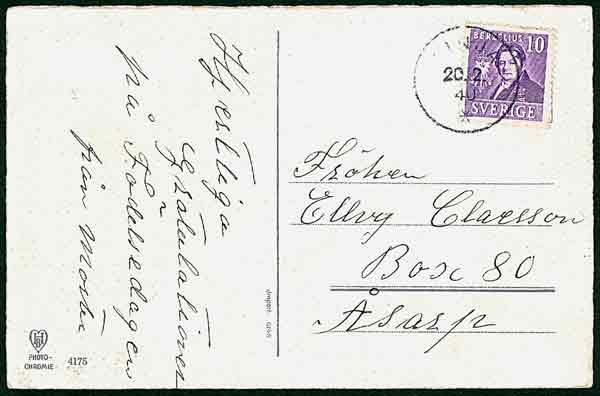 Hjertliga
Gratulationer
på Födelsedagen
från Moster
BERZELIUS 10
SVERIGE
20.2.
40
Fröken
Elley Claesson
Box 80
Åsarp
PHOTO-
CHROMIE
4175